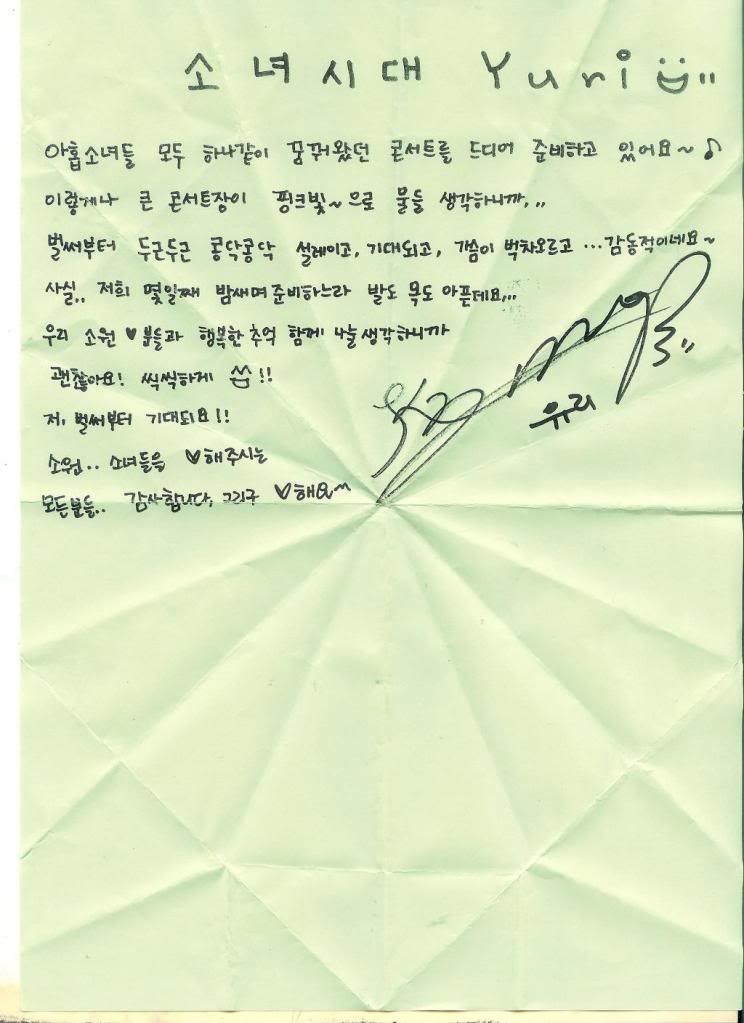 소녀시대 Yuri
아홉소녀들 모두 하나같이 꿈꿔왔던 콘서트를 드디어 준비하고 있어요~♪
이렇게나 큰 콘서트장이 핑크빛~으로 물들 생각하니까,..
벌써부터 두근두근 콩닥콩닥 설레이고, 기대되고, 가슴이 벅차오르고 ...감동적이네요~
사실.. 저희 몇일째 밤새며 준비하느라 발도 목도 아픈데요,...
우리 소원♥분들과 행복한 추억 함께 나눌 생각하니까
괜찮아요! 씩씩하게 !!
저, 벌써부터 기대되요!!
유리
소원.. 소녀들을 ♥해주시는
모든분들.. 감사합니다, 그리구 ♥해요~